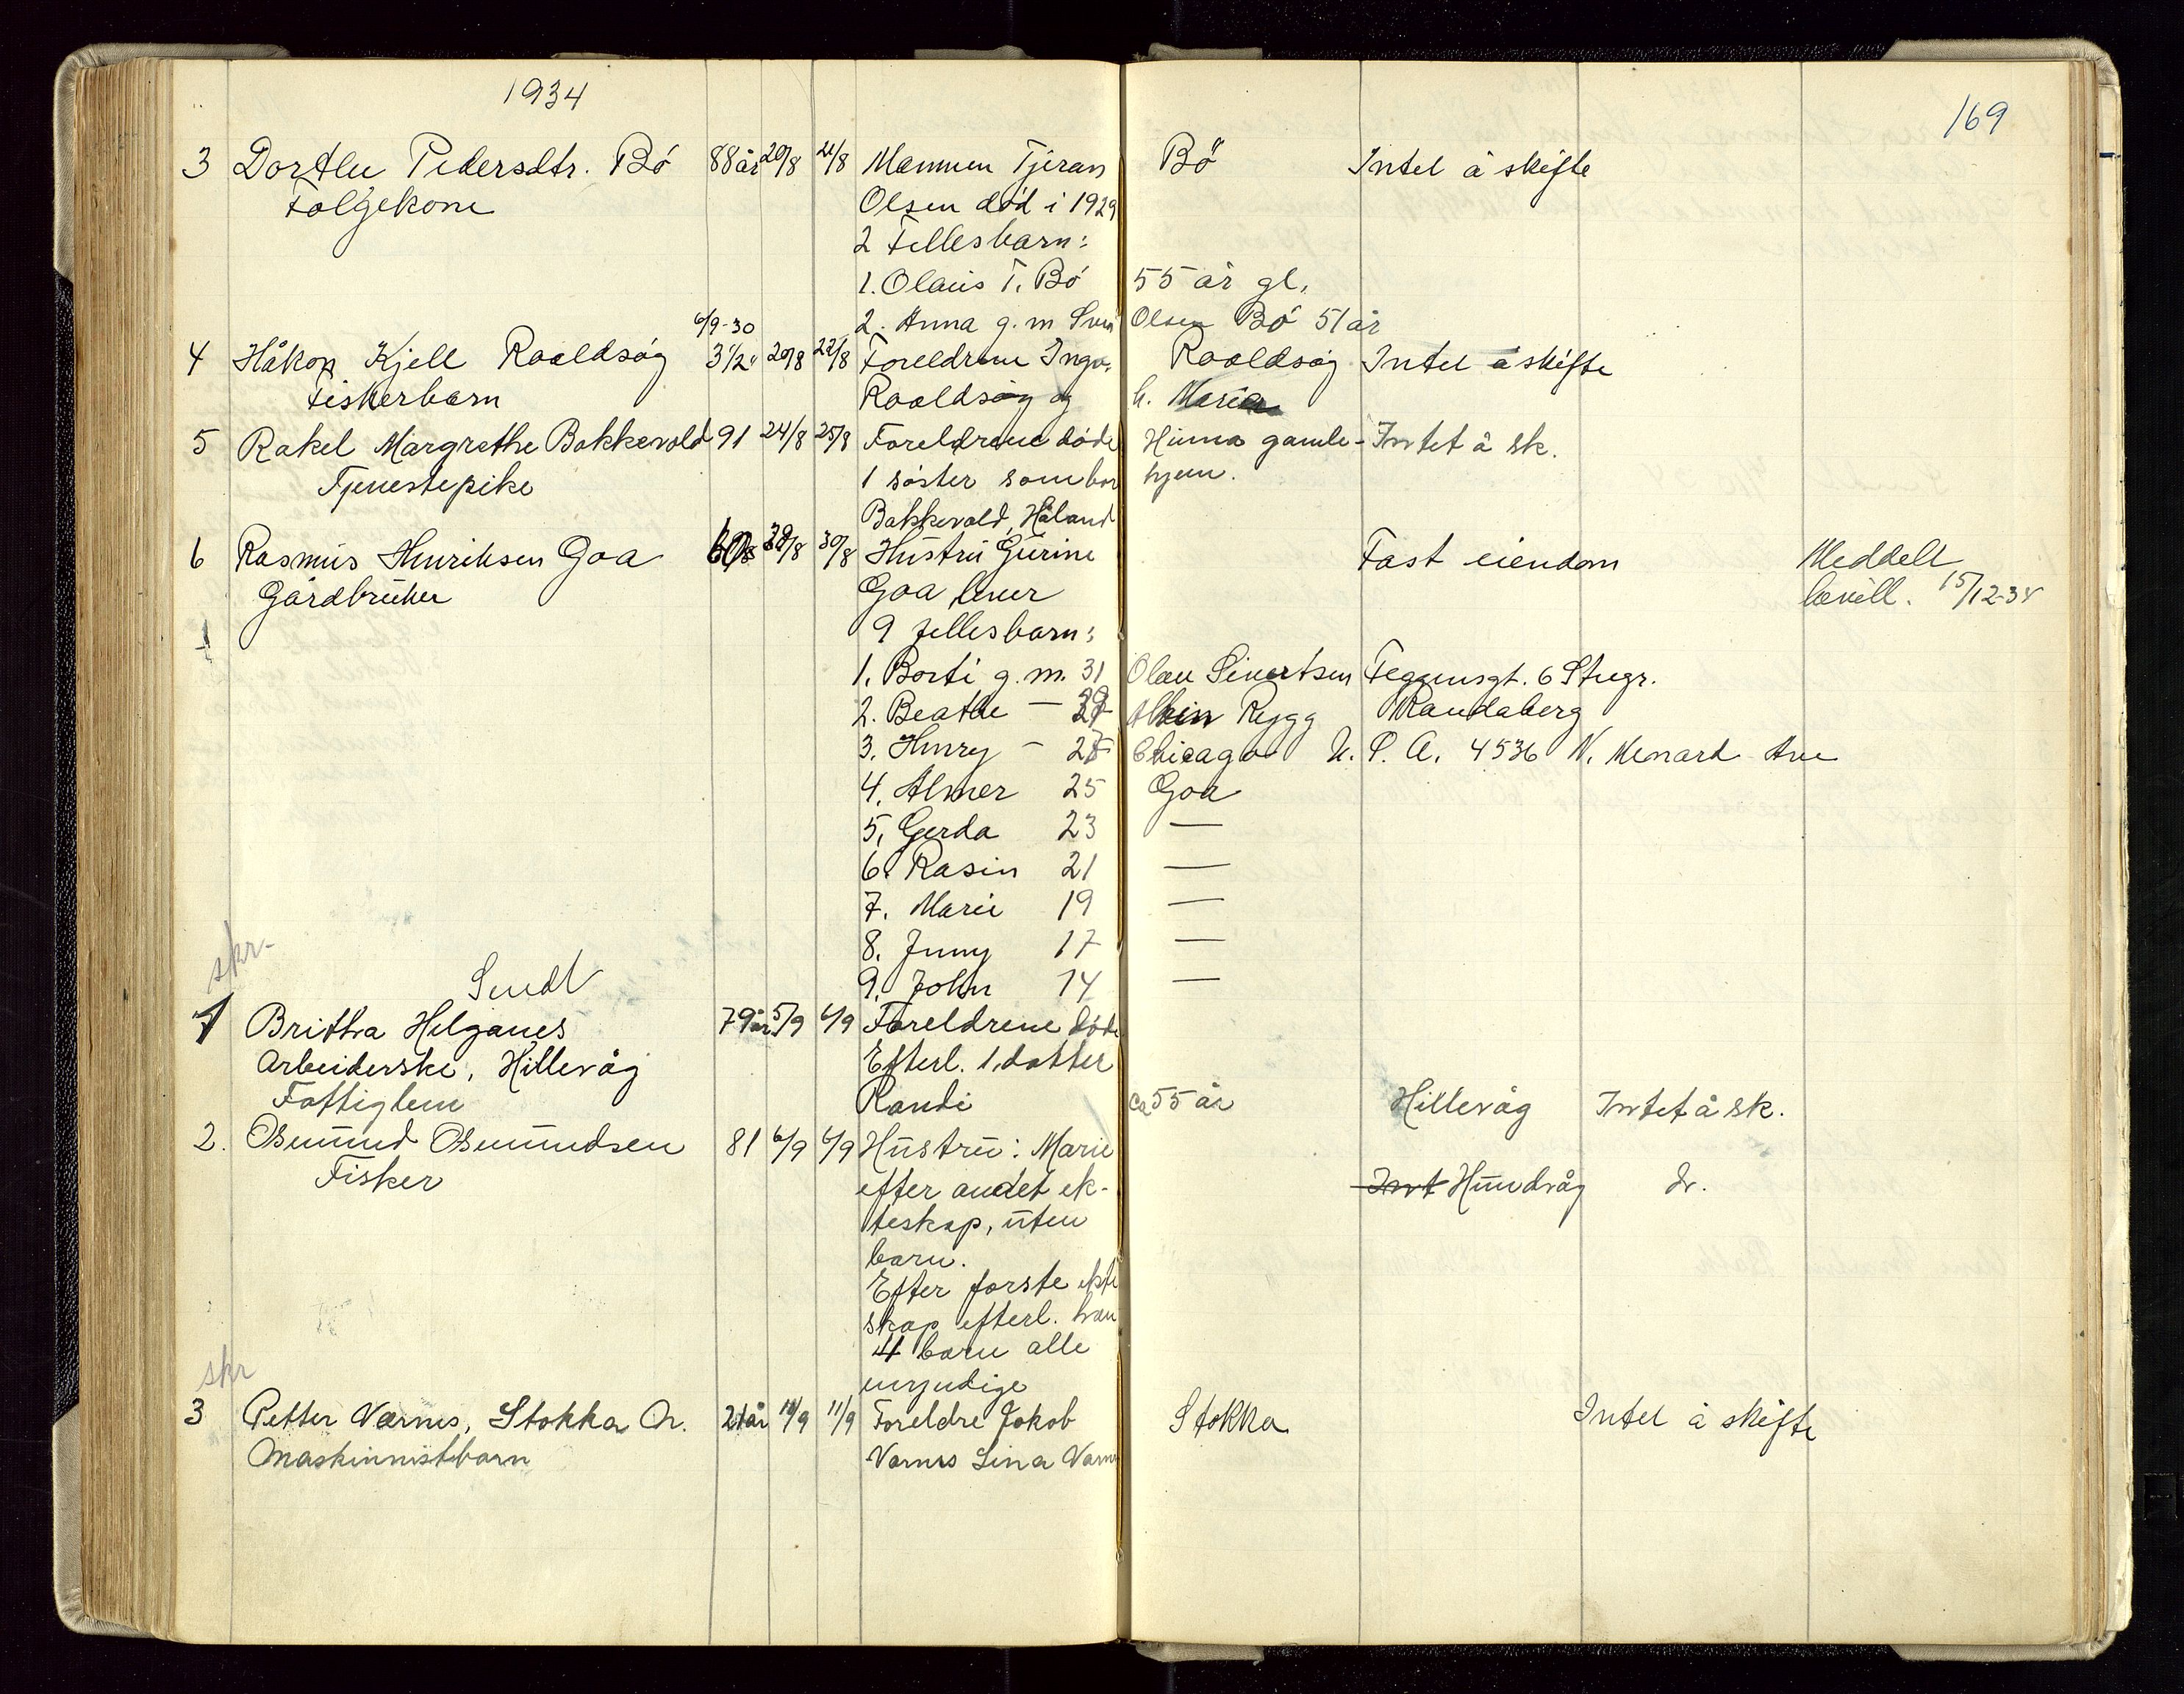 1934
169
3 Dorthe Pedersdtr. Bö 88 år 20/8 21/8 Mannen Tjeran Bö Intet å skifte
Følgekone Olsen död i 1929
2 Fellesbarn:
1. Olaus T. Bö 55 år gl.
6/9-30 2. Anna g.m Sven Olsen Bö 51 år
4 Håkon Kjell Roaldsøy 3 1/2 20/8 22/8 Foreldrene Roaldsøy Intet å skifte
Fiskerbarn Roaldsøy og h. Maria
5 Rakel Margrethe Bakkevold 91 24/8 25/8 Foreldrene döde Hinna gamle- Intet å sk.
Tjenestepike 1 söster som bor hjem.
Bakkevold, Håland
6 Rasmus Henriksen Goa 30/8 Hustru Gurine Fast eiendom Meddelt
Gårdbruker Goa lever bevill. 15/12-34
1 9 fellesbarn:
1. Borti g.m. 31 Olav Sivertsen 6 Stvgr.
2. Beathe — Rygg Randaberg
3. Henry - 27 Chicago U. S. A. 4536 N. Menard Ave
4. Almer 25 Goa
5. Gerda 23 —
6. Rasin 21 —
7. Marie 19 —
8. Jenny 17 —
skr- Sendt 9. John 14 —
1 Britha Helganes 79 år 5/9 6/9 Foreldrene döde
Arbeiderske, Hillevåg Efterl. 1. datter
Fattiglem Randi ca 55 år Hillevåg Intet å sk.
2. Osmund Osmundsen 81 6/9 6/9 Hustru: Marie
Fisker efter andet ek- Int Hundvåg do.
teskap, uten
barn.
Efter første ekte
skap efterl. han
4 barn alle
skr myndige
3 Petter Varnes, Stokka Ar. 21 år 10/9 11/9 Foreldre Jakob Stokka Intet å skifte
Maskinnistbarn Varnes Lina Varnes